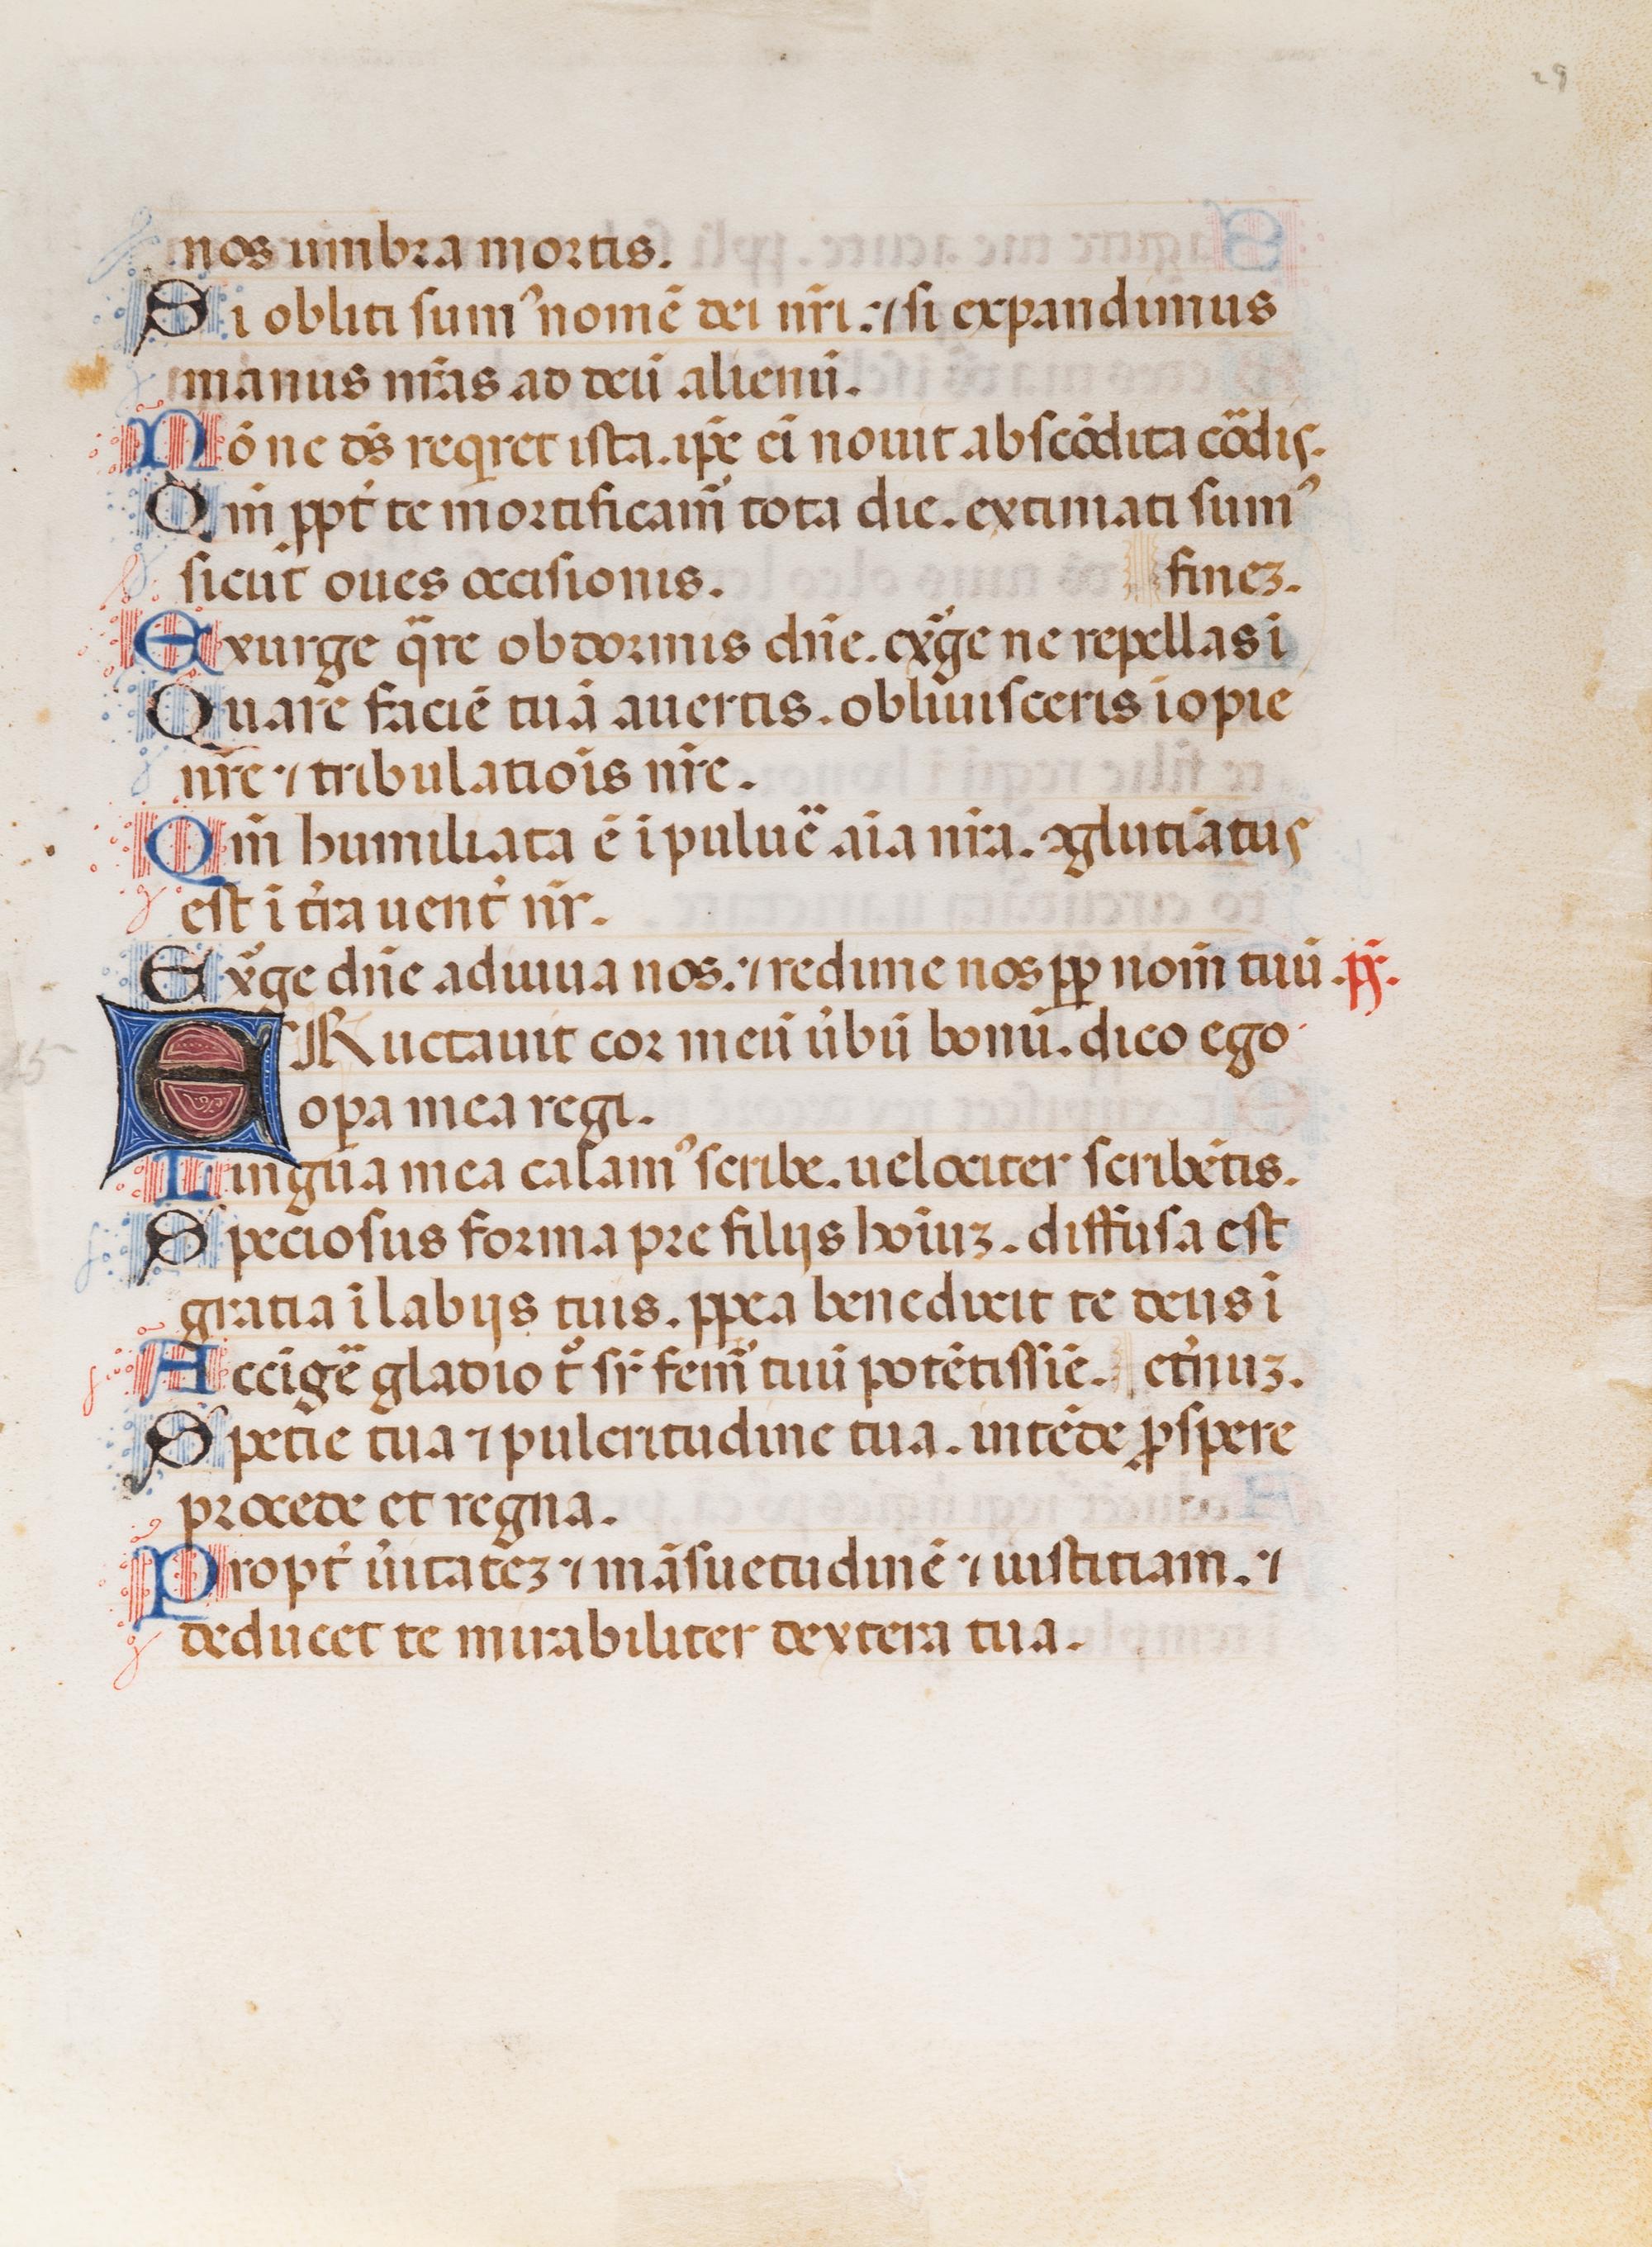 29
nos umbra mortis.
Si obliti sumꝰ nomē dei nr̄i. ⁊ si expandimus
manus nr̄as ad deū alienū.
Nōne ds̄ reqret ista. ip̄e eī nouit abscōdita cōdis.
Qm̄ ppt̄ te mortificam̄ tota die. extimati sumꝰ
sicut oues occisionis. finez.
Exurge q̄re obdormis dn̄e. exġe ne repellas ī
Quare faciē tuā auertis. obliuisceris īopie
nr̄e ⁊ tribulatiōis nr̄e.
Qm̄ humiliata ē ī puluē aīa nr̄a. 9glutīatus
est ī tr̄a uent̄ nr̄.
Exġe dn̄e adiuua nos. ⁊ redime nos pp nom̄ tuū. ps̄.
45
ERuctauit cor meū ūbū bonū. dico ego
opa mea regi.
Lingua mea calamꝰ scribe. uelociter scribētis.
Speciosus forma pre filijs hoīuz. diffusa est
gratia ī labijs tuis. ppea benedixit te deus ī
Accīgē gladio tͦ sr̄ fem̄ tuū potētissīe. et̄nuz.
Spetie tua ⁊ pulcritudine tua. intēde ꝓspere
procede et regna.
Propt̄ ūitatez ⁊ māsuetudinē ⁊ iustitiam. ⁊
deducet te mirabiliter dextera tua.